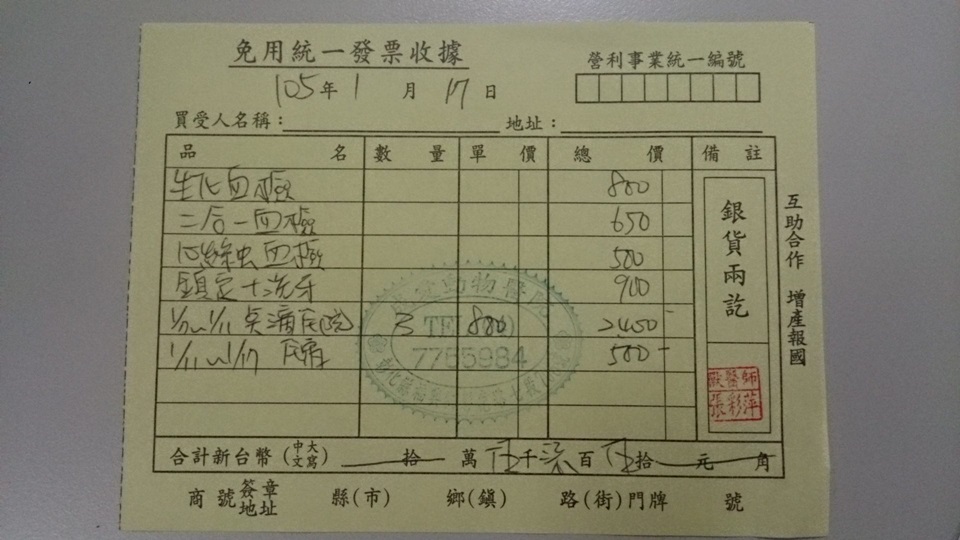 免用統一發票收據
營利事業統一編號
105年 1 月 17 日
買受人名稱： 地址：
品名 數量 單價 總價 備註
生化血檢 800
二合一血檢 650
心絲蟲血檢 500
鎮定+洗牙 900
1/11 住院 3 800 2400-
1/11~1/17 住宿 500-
銀貨兩訖
互助合作 增產報國
動物醫院
TEL
7785984
獸醫師
張彩萍
合計新台幣(中文大寫) 拾 萬 伍千柒百伍拾 元 角
商號簽章地址 縣(市) 鄉(鎮) 路(街)門牌 號